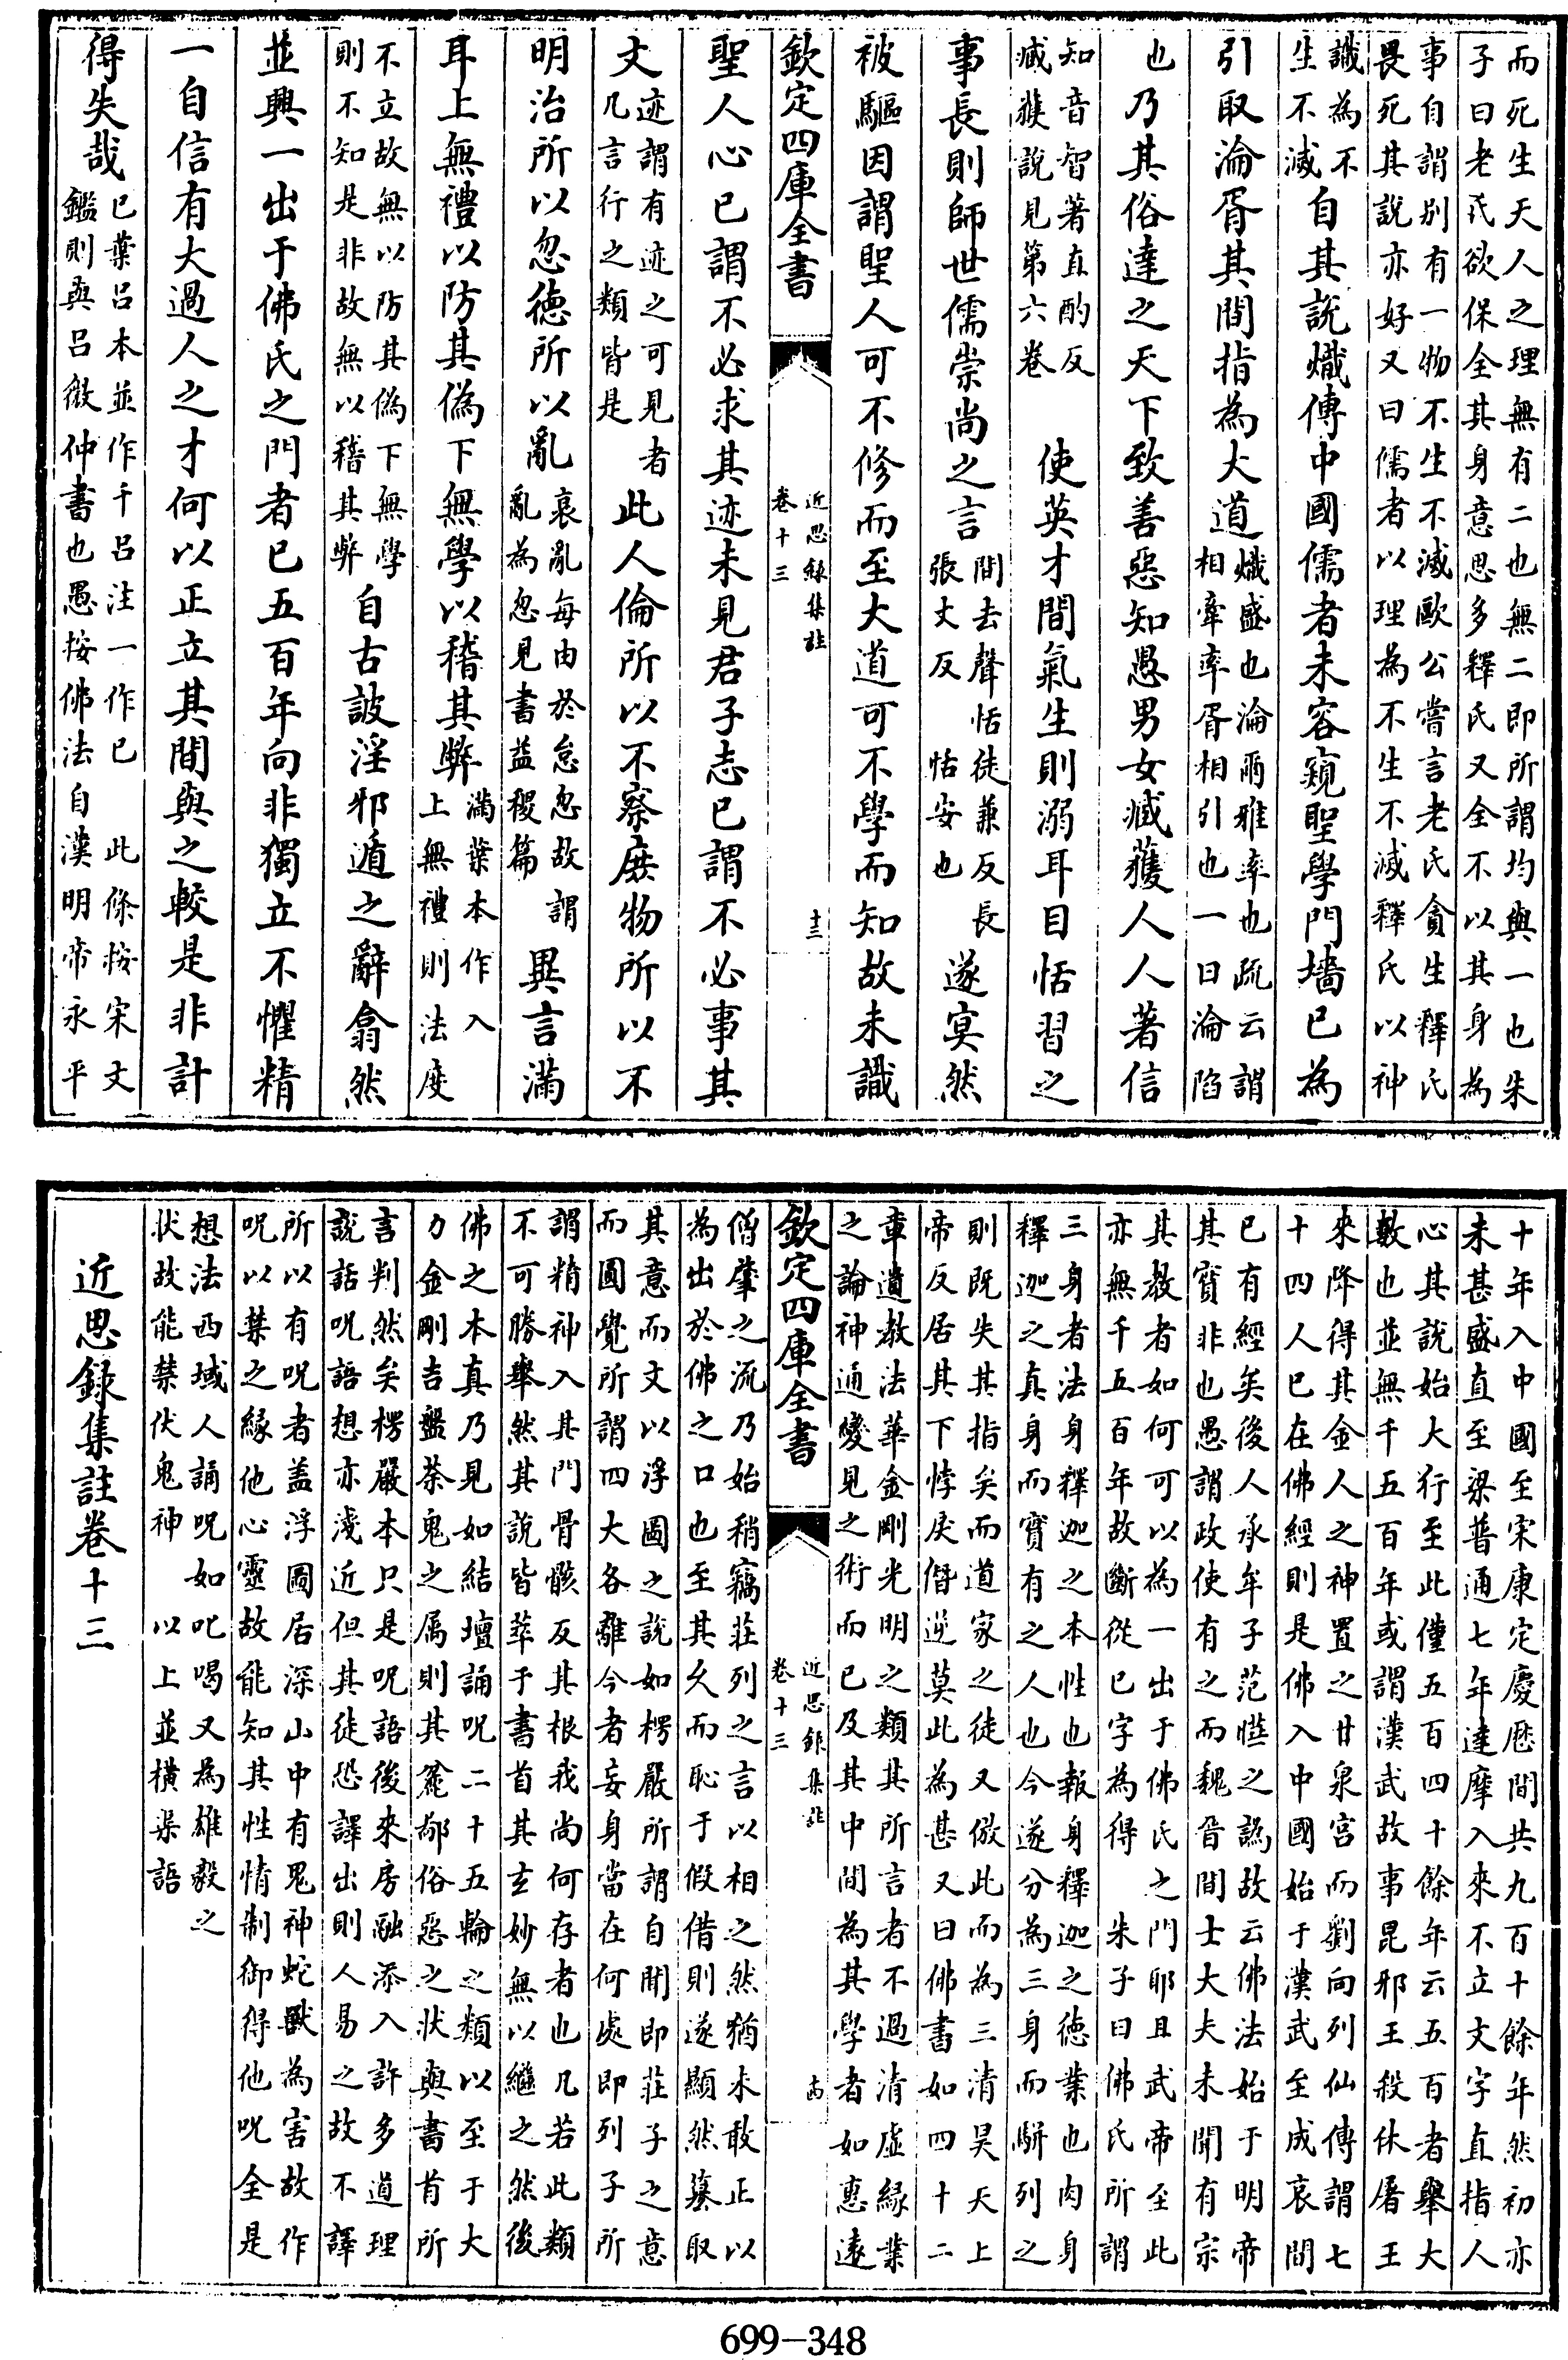 而死生天人之理無有二也無二即所謂均與一也朱
子曰老氏欲保全其身意思多釋氏又全不以其身為
事自謂别有一物不生不滅歐公嘗言老氏貪生釋氏
畏死其說亦好又曰儒者以理為不生不滅釋氏以神
識為不生不滅自其說熾傳中國儒者未容窺聖學門墻已為
引取淪胥其間指為大道熾盛也淪爾雅率也疏云謂相牽率胥相引也一曰淪陷
也乃其俗達之天下致善惡知愚男女臧獲人人著信
知音智著直酌反臧獲說見第六卷使英才間氣生則溺耳目恬習之
事長則師世儒崇尚之言間去聲恬徒兼反長張丈反恬安也遂冥然
被驅因謂聖人可不修而至大道可不學而知故未識
欽定四庫全書
近思録集註
卷十三
十三
聖人心已謂不必求其迹未見君子志已謂不必事其
文迹謂有迹之可見者凡言行之類皆是此人倫所以不察庶物所以不
明治所以忽德所以亂哀亂每由於怠忽故謂亂為忽見書益稷篇異言滿
耳上無禮以防其偽下無學以稽其弊滿葉本作入上無禮則法度
不立故無以防其偽下無學則不知是非故無以稽其弊自古詖淫邪遁之辭翕然
並興一出于佛氏之門者已五百年向非獨立不懼精
一自信有大過人之才何以正立其間與之較是非計
得失哉已葉呂本並作千呂注一作已此條按宋文鑑則與呂微仲書也愚按佛法自漢明帝永平
十年入中國至宋康定慶厯間共九百十餘年然初亦
未甚盛直至梁普通七年達摩入來不立文字直指人
心其說始大行至此僅五百四十餘年云五百者舉大
數也並無千五百年或謂漢武故事昆邪王殺休屠王
來降得其金人之神置之甘泉宮而劉向列仙傳謂七
十四人已在佛經則是佛入中國始于漢武至成哀間
已有經矣後人承牟子范蠂之譌故云佛法始于明帝
其實非也愚謂政使有之而魏晉間士大夫未聞有宗
其教者如何可以為一出于佛氏之門耶且武帝至此
亦無千五百年故斷從已字為得朱子曰佛氏所謂
三身者法身釋迦之本性也報身釋迦之德業也肉身
釋迦之真身而實有之人也今遂分為三身而駢列之
則既失其指矣而道家之徒又倣此而為三清昊天上
帝反居其下悖戾僭逆莫此為甚又曰佛書如四十二
章遺教法華金剛光明之類其所言者不過清虛緣業
之論神通變見之術而已及其中間為其學者如惠遠
欽定四庫全書
近思録集註
卷十三
十四
僧肇之流乃始稍竊莊列之言以相之然猶未敢正以
為出於佛之口也至其久而恥于假借則遂顯然簒取
其意而文以浮圖之說如楞嚴所謂自聞即莊子之意
而圓覺所謂四大各離今者妄身當在何處即列子所
謂精神入其門骨骸反其根我尚何存者也凡若此類
不可勝舉然其說皆萃于書首其玄妙無以繼之然後
佛之本真乃見如結壇誦呪二十五輪之類以至于大
力金剛吉盤荼鬼之属則其麄鄙俗惡之狀與書首所
言判然矣楞嚴本只是呪語後來房融添入許多道理
說話呪語想亦淺近但其徒恐譯出則人易之故不譯
所以有呪者盖浮圖居深山中有鬼神蛇獸為害故作
呪以禁之緣他心靈故能知其性情制御得他呪全是
想法西域人誦呪如叱喝又為雄毅之
狀故能禁伏鬼神以上並橫渠語
近思録集註卷十三
699-348